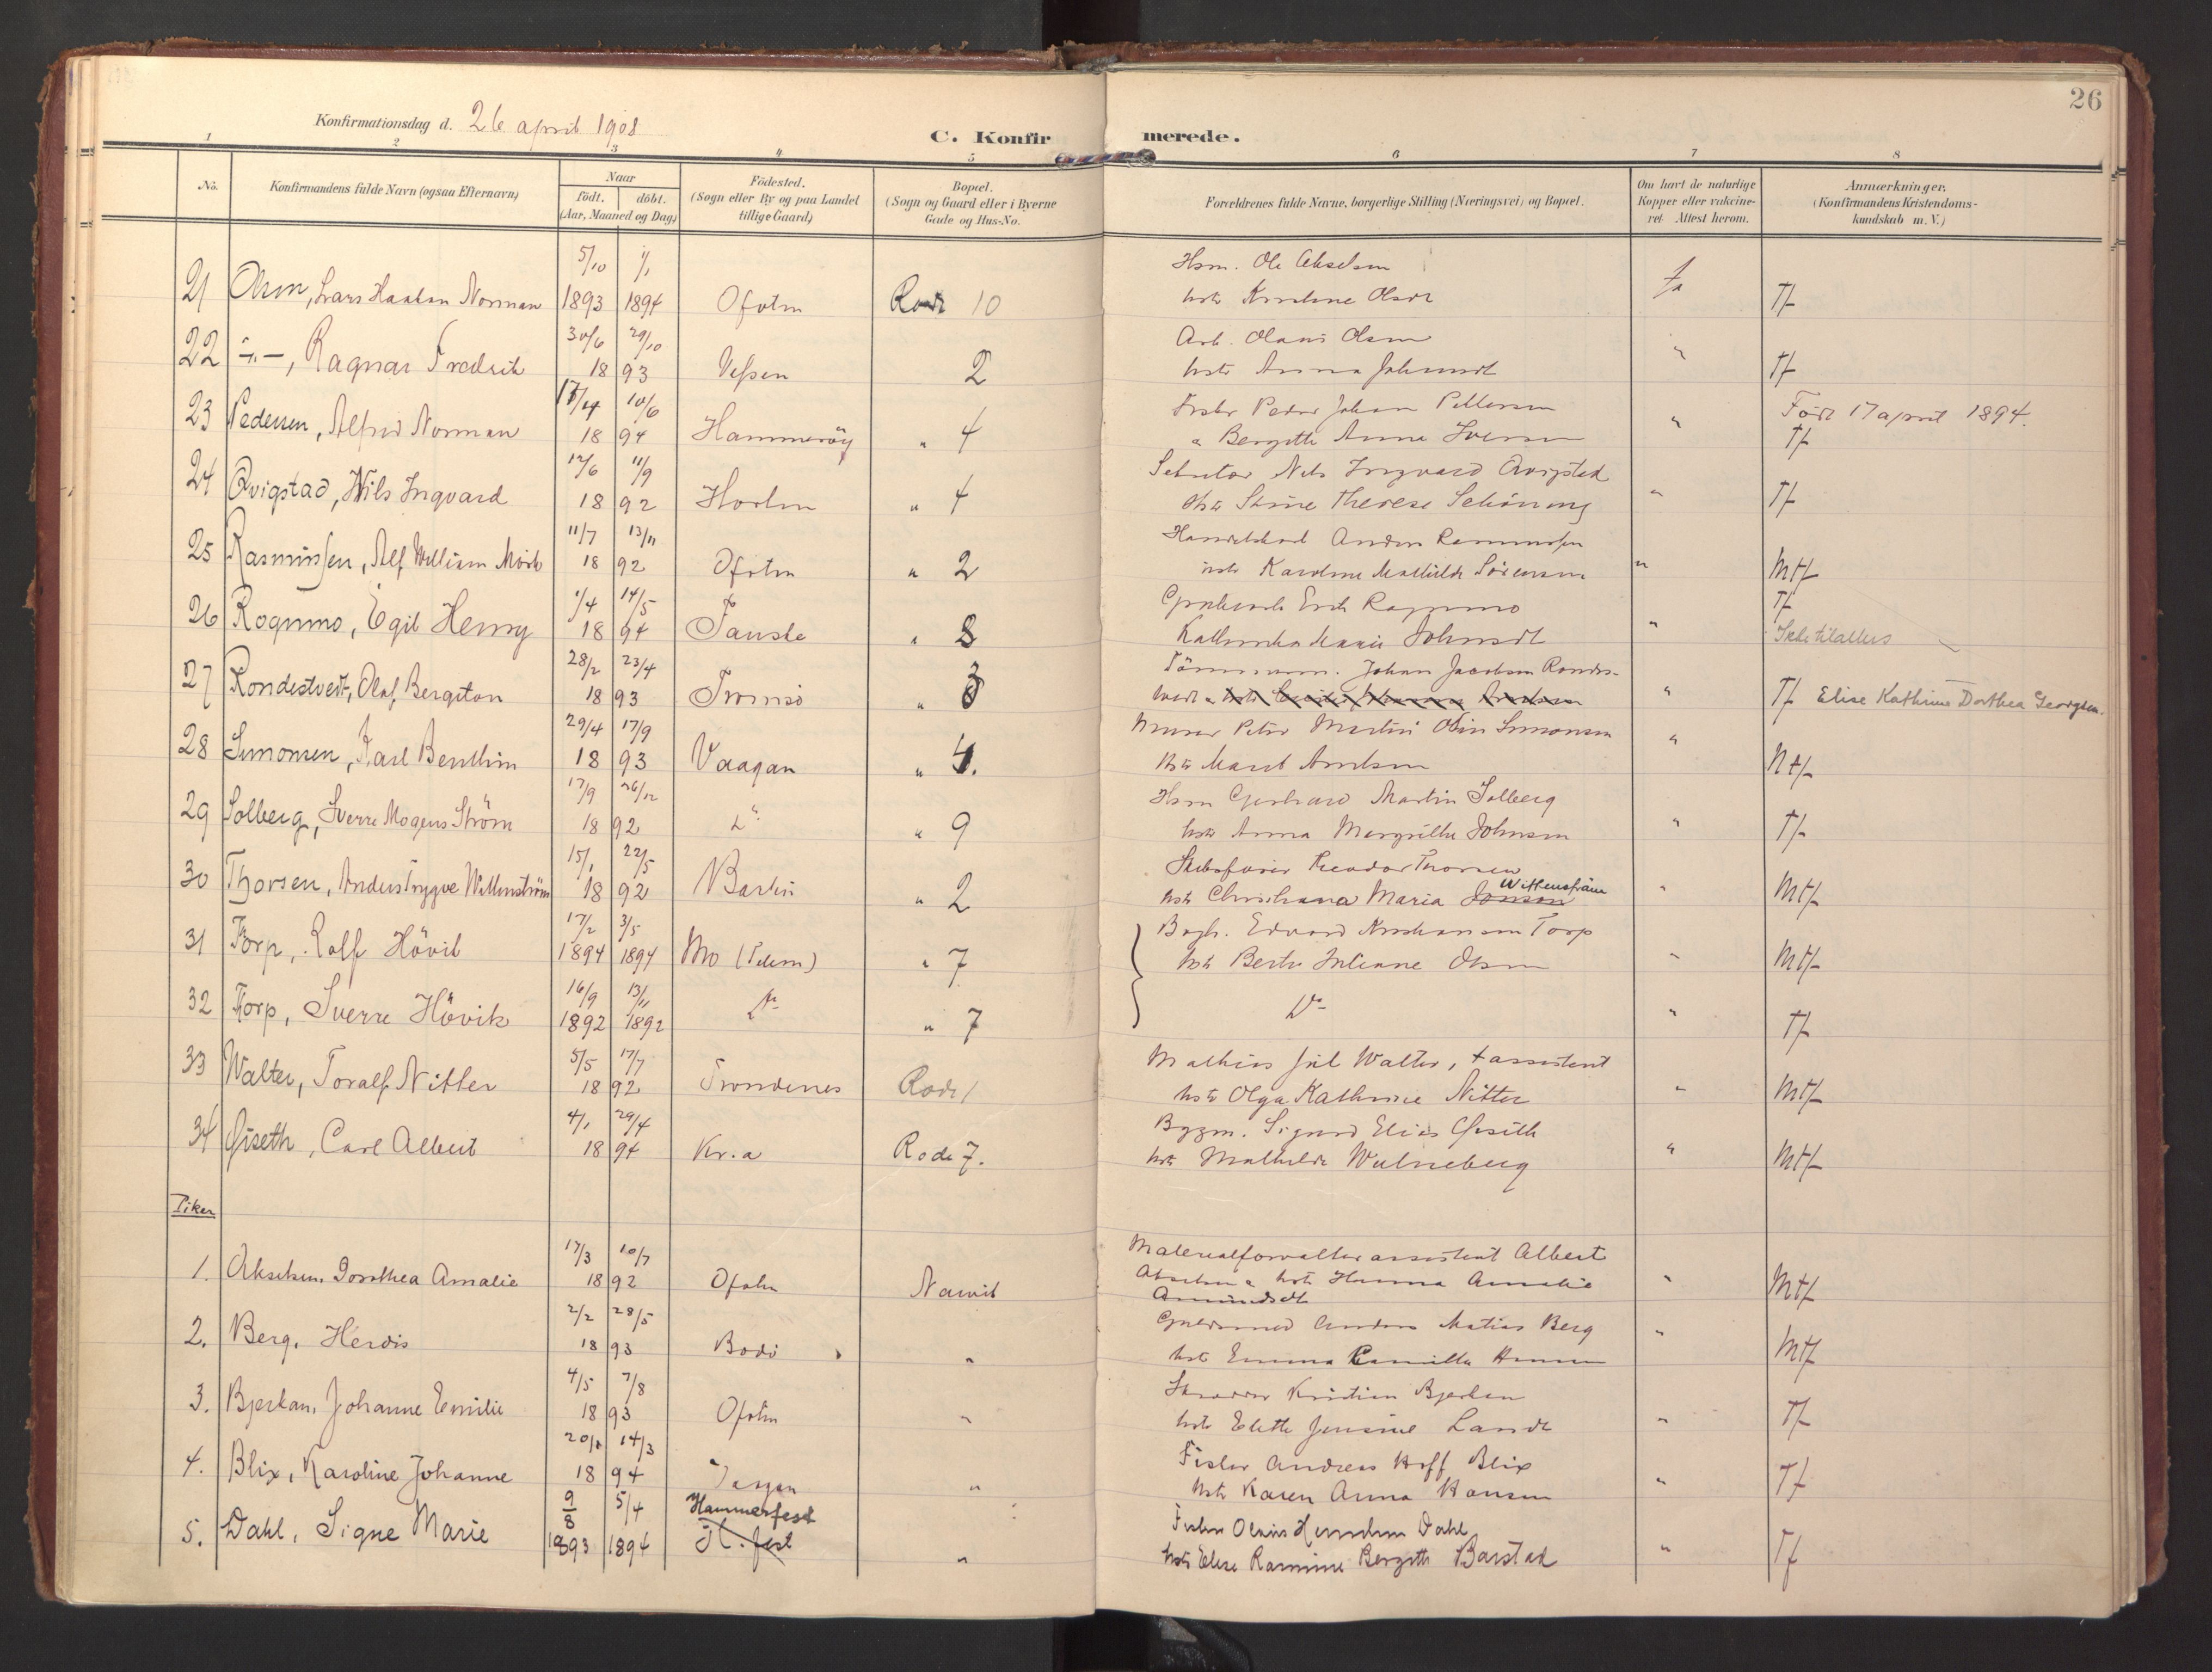 26
Konfirmationsdag d. 26 april 1908
C. Konfirmerede.
1 2 3 4 5 6 7 8
No. Konfirmandens fulde Navn (ogsaa Efternavn) Naar födt. döbt. (Aar, Maaned og Dag) Födested. (Sogn eller By og paa Landet tillige Gaard) Bopæl. (Sogn og Gaard eller i Byerne Gade og Hus-No. Forældrenes fulde Navne, borgerlige Stilling (Næringsvei) og Bopæl. Om havt de naturlige Kopper eller vakcineret. Attest herom. Anmærkninger. (Konfirmandens Kristendomskundskab m. V.)
21 Olsen, Lars Haakon Norman 5/10 1893 1/1 1894 Ofoten Rode 10 Hsm. Ole Akselsen
hstr Olsdt Tf
22 -"-, Ragnar Fredrik 30/6 29/10 1893 Vefsen 2 Arb. Olaus Olsen
hstr Anna " Tf
23 Pedersen, Alfred Norman 17/4 10/6 1894 Hammeröy " 4 Peder Johan Pettersen " Föd 17 april 1894.
" Bergitte Anna Iversen Tf
24 Qvigstad, Nils Ingvard 12/6 11/9 1892 " 4 Nils Ingvard Qvigstad
hstr Stine Therese Schöning " Tf
25 Rasmussen, Alf William Mörk 11/7 13/11 1892 Ofoten " 2 Anders Rasmussen
hstr Karoline Mathilde Sörensen " Mtf
26 Rognmo, Egil Henry 1/4 14/5 1894 Fauske " 8 Erik Rognmo Tf
Johnsdt "
27 Rondestvedt, Olaf Bergiton 28/2 23/4 1893 Tromsö " 3 Tömmerm. Johan Jacobsen Rondest-
vedt " " Tf Elise Kathrine Dorthea Georgsen.
28 Simonsen, Karl Benthin 29/4 17/9 1893 Vaagan " 4. Murer Peter Martin Odin Simonsen "
hstr Maret Ntf
29 Solberg, Sverre Mogens Ström 17/9 26/12 1892 Do " 9 Hsm Gerhard Martin Solberg
hstr Anna Margrethe Johnsen " Tf
30 Thorsen, Anders Trygve Wittenström 15/1 22/5 1892 " 2 Skibsförer Theodor Thorsen
hstr Christiana Maria Jonson Wittenström " Mtf
31 Torp, Rolf Hövik 17/2 1894 3/5 1894 Mo (Telem) " 7 Edvard Kristiansen Torp
hstr Berthe Juliane Olsen " Mtf
32 Torp, Sverre Hövik 16/9 1892 13/11 1892 Do " 7 Do " Tf
33 Walter, Toralf Nitter 5/5 17/7 1892 Trondenes Rode 1 Mathias Juel Walter, t assistent
hstr Olga Kathrine Nitter " Mtf
34 Giseth, Carl Albert 4/1 29/4 1894 Kr.a Rode 7. Bygm. Sigurd Elias Giseth
hstr Mathilde Wulneberg " Mtf
Piker
1. Akselsen, Dorothea Amalie 17/3 10/7 1892 Ofoten Narvik Materialforvalter assistent Albert
Akselsen & hstr Hanna Amalie " Mtf
Amundsdtr
2. Berg, Herdis 2/2 28/5 1893 Bodö " Guldsmed Anders Matias Berg "
hstr Emma Camilla Hansen Mtf
3. Bjerkan, Johanne Emilie 4/5 7/8 1893 Ofoten " Kristian Bjerkan
hstr Elethe Jensine Lande " Tf
4. Blix, Karoline Johanne 14/3 1894 " Fisker Andreas Hoff Blix
hstr Karen Anna Hansen " Tf
5. Dahl, Signe Marie 9/8 1893 5/4 1894 Hammerfest H.fest " Fisker Olaus Dahl
hstr Elise Rasmine Bergitte " Tf